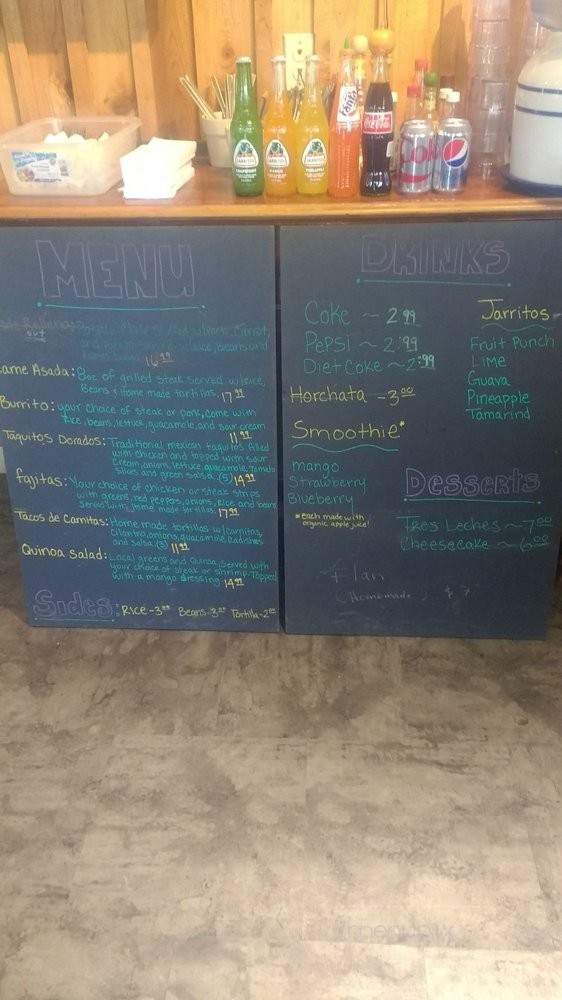 MENU
16.99
Carne Asada: 8oz of grilled steak served w/rice,
Beans & home made tortillas. 17.99
Burrito: your choice of steak or pork, come with
rice, beans, lettuce, guacamole, and sour cream
11.99
Taquitos Dorados: Traditional mexican taquitos filled
with chicken and topped with sour
cream, onion, lettuce, guacamole, tomato
slices and green salsa. (5) 14.99
Fajitas: Your choice of chicken or steak strips
with greens, red peppers, onions, rice and beans
served with home made tortillas. 17.99
Tacos de Carnitas: Home made tortillas w/carnitas,
cilantro, onions, guacamole, Radishes
and salsa (3) 11.99
Quinoa Salad: Local greens and Quinoa, served with
your choice of steak or shrimp. Topped
with a mango dressing. 14.99
Sides: Rice -3.00 Beans -3.00 Tortilla -2.00
DRINKS
Coke ~ 2.99
Pepsi ~ 2.99
Diet Coke ~ 2.99
Horchata - 3.00
Jarritos
Fruit Punch
Lime
Guava
Pineapple
Tamarind
Smoothie*
mango
Strawberry
Blueberry
*each made with
organic apple juice!
Desserts
Tres Leches ~ 7.00
Cheesecake ~ 6.00
Flan
(Homemade) $7